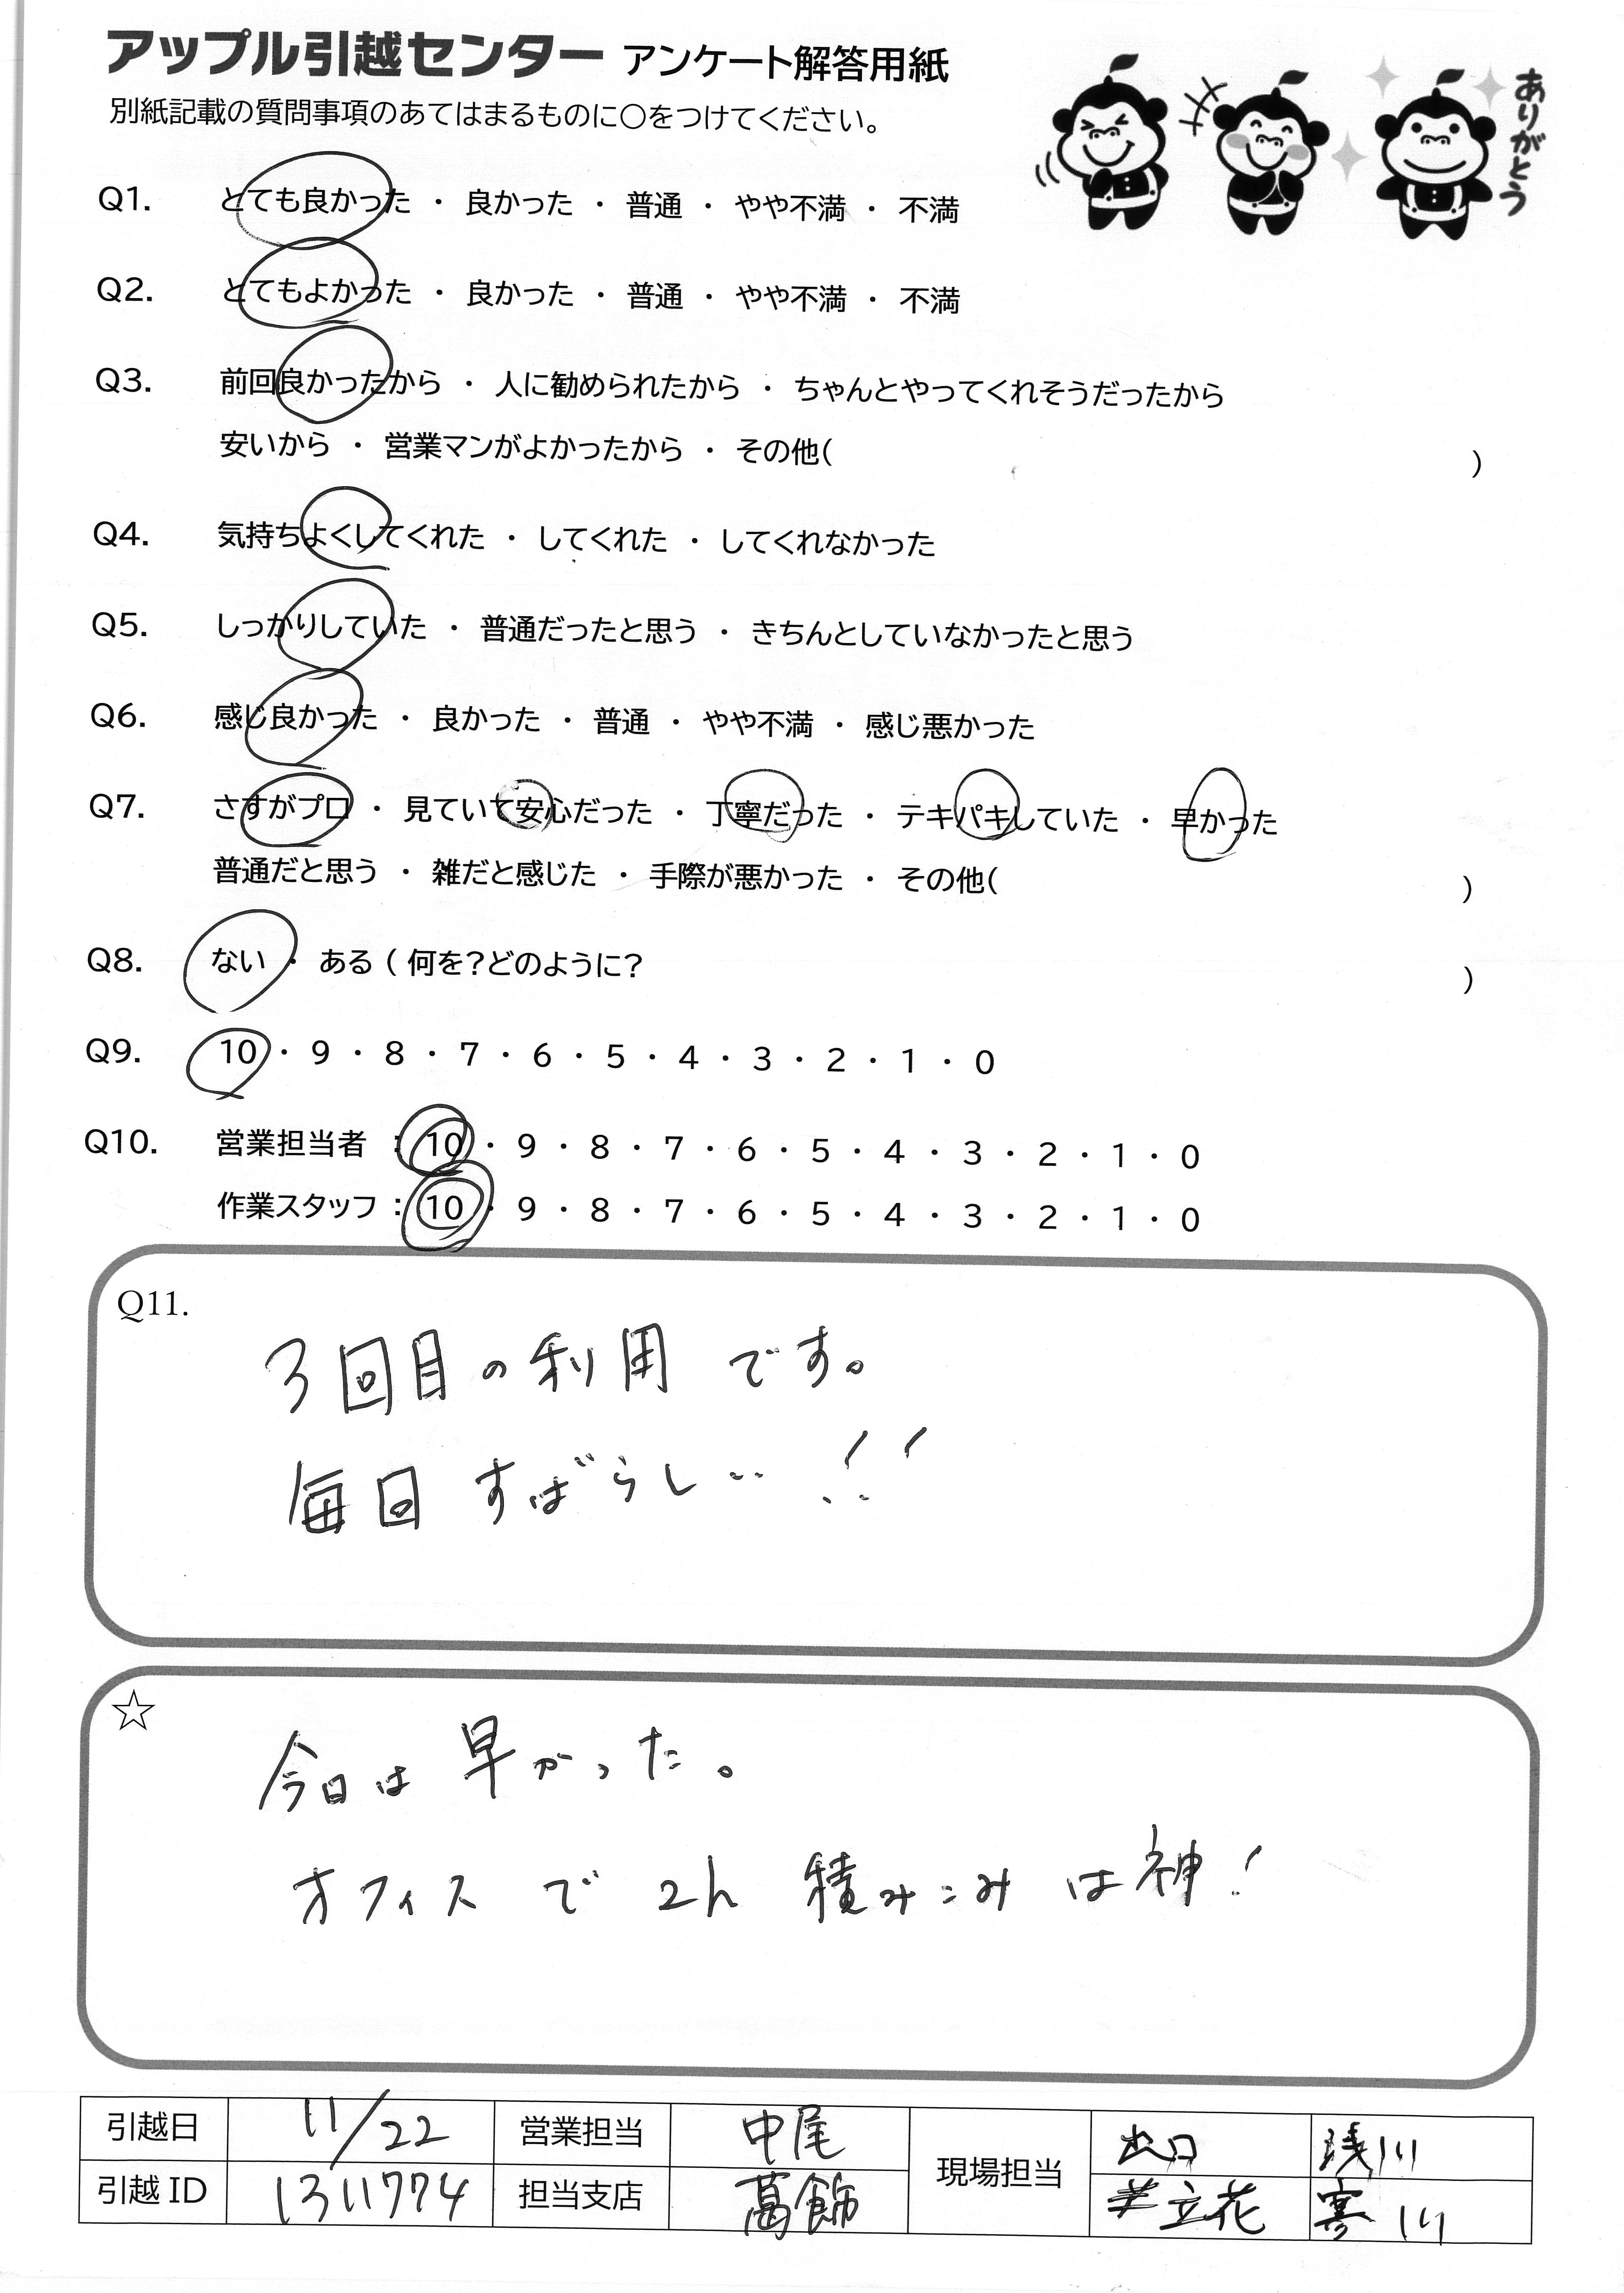 アップル引越センター アンケート解答用紙
別紙記載の質問事項のあてはまるものに○をつけてください。
ありがとう
Q1. とても良かった ・ 良かった ・ 普通 ・ やや不満 ・ 不満
Q2. とてもよかった ・ 良かった ・ 普通 ・ やや不満 ・ 不満
Q3. 前回良かったから ・ 人に勧められたから ・ ちゃんとやってくれそうだったから
安いから ・ 営業マンがよかったから ・ その他( )
Q4. 気持ちよくしてくれた ・ してくれた ・ してくれなかった
Q5. しっかりしていた ・ 普通だったと思う ・ きちんとしていなかったと思う
Q6. 感じ良かった ・ 良かった ・ 普通 ・ やや不満 ・ 感じ悪かった
Q7. さすがプロ ・ 見ていて安心だった ・ 丁寧だった ・ テキパキしていた ・ 早かった
普通だと思う ・ 雑だと感じた ・ 手際が悪かった ・ その他( )
Q8. ない ・ ある ( 何を?どのように? )
Q9. 10 ・ 9 ・ 8 ・ 7 ・ 6 ・ 5 ・ 4 ・ 3 ・ 2 ・ 1 ・ 0
Q10. 営業担当者 : 10 ・ 9 ・ 8 ・ 7 ・ 6 ・ 5 ・ 4 ・ 3 ・ 2 ・ 1 ・ 0
作業スタッフ : 10 ・ 9 ・ 8 ・ 7 ・ 6 ・ 5 ・ 4 ・ 3 ・ 2 ・ 1 ・ 0
Q11.
3回目の利用です。
毎回すばらしい!!
☆
今日は早かった。
オフィスで2h積みこみは神!
引越日 11/22 営業担当 中尾 現場担当 出口 浅川
引越ID 1311774 担当支店 葛飾 立花 寒川